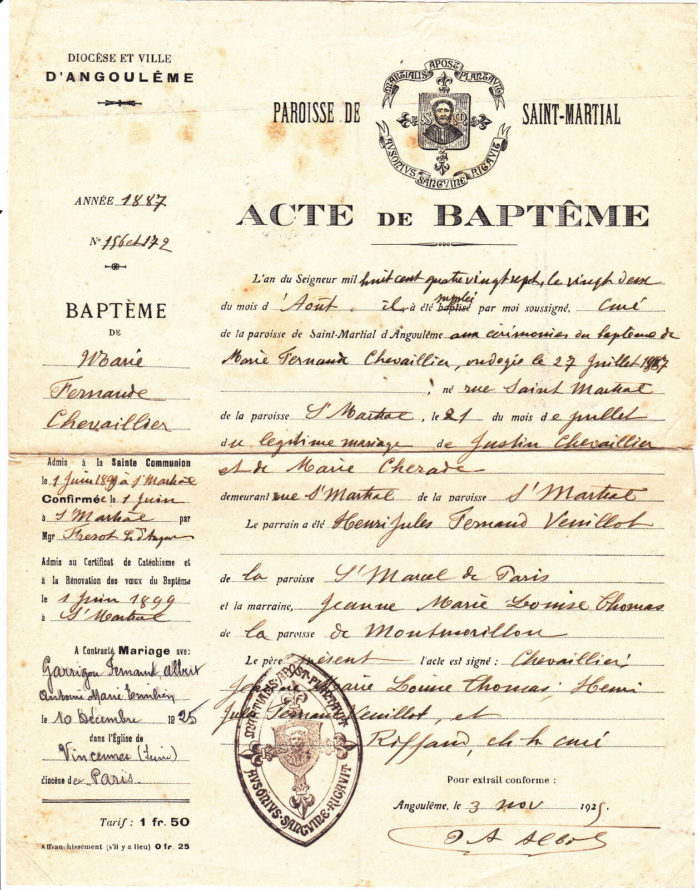 DIOCÈSE ET VILLE
D'ANGOULÊME
MARTIALIS APOST PLANTAVIT
AVSONIVS SANGVINE RIGAVIT
PAROISSE DE SAINT-MARTIAL
ACTE DE BAPTÊME
ANNÉE 1887
N° 156 et 172
BAPTÈME
DE
Marie
Fernande
Chevaillier
Admis à la Sainte Communion
le 1 Juin 1899 à St Martial
Confirmée le 1 Juin
à St Martial par
Mgr
Admis au Certificat de Catéchisme et
à la Rénovation des vœux du Baptême
le 1 Juin 1899
à St Martial
A Contracté Mariage avec
Garrigou Fernand Albert
Antoine Marie
le 10 Décembre 1925
dans l'Église de
Vincennes (Seine)
diocèse de Paris
Tarif : 1 fr. 50
Affranchissement (s'il y a lieu) 0 fr. 25
L'an du Seigneur mil huit cent quatre vingt sept, le vingt deux
du mois d'Août il a été baptisé suppléé par moi soussigné, curé
de la paroisse de Saint-Martial d'Angoulême aux cérémonies du baptème de
Marie Fernande Chevaillier, ondoyée le 27 Juillet 1887
né rue Saint Martial
de la paroisse St Martial, le 21 du mois de juillet
du légitime mariage de Justin Chevaillier
et de Marie Cherade
demeurant rue St Martial de la paroisse St Martial
Le parrain a été Henri Jules Fernand Veuillot
de la paroisse St Marcel de Paris
et la marraine, Jeanne Marie Louise Thomas
de la paroisse de Montmorillon
Le père présent l'acte est signé : Chevaillier,
Jeanne Marie Louise Thomas, Henri
Jules Fernand Veuillot, et
Riffaud, ch. h. curé
Pour extrait conforme :
Angoulême, le 3 nov 1925.
MARTIALIS APOST PLANTAVIT
AVSONIVS SANGVINE RIGAVIT